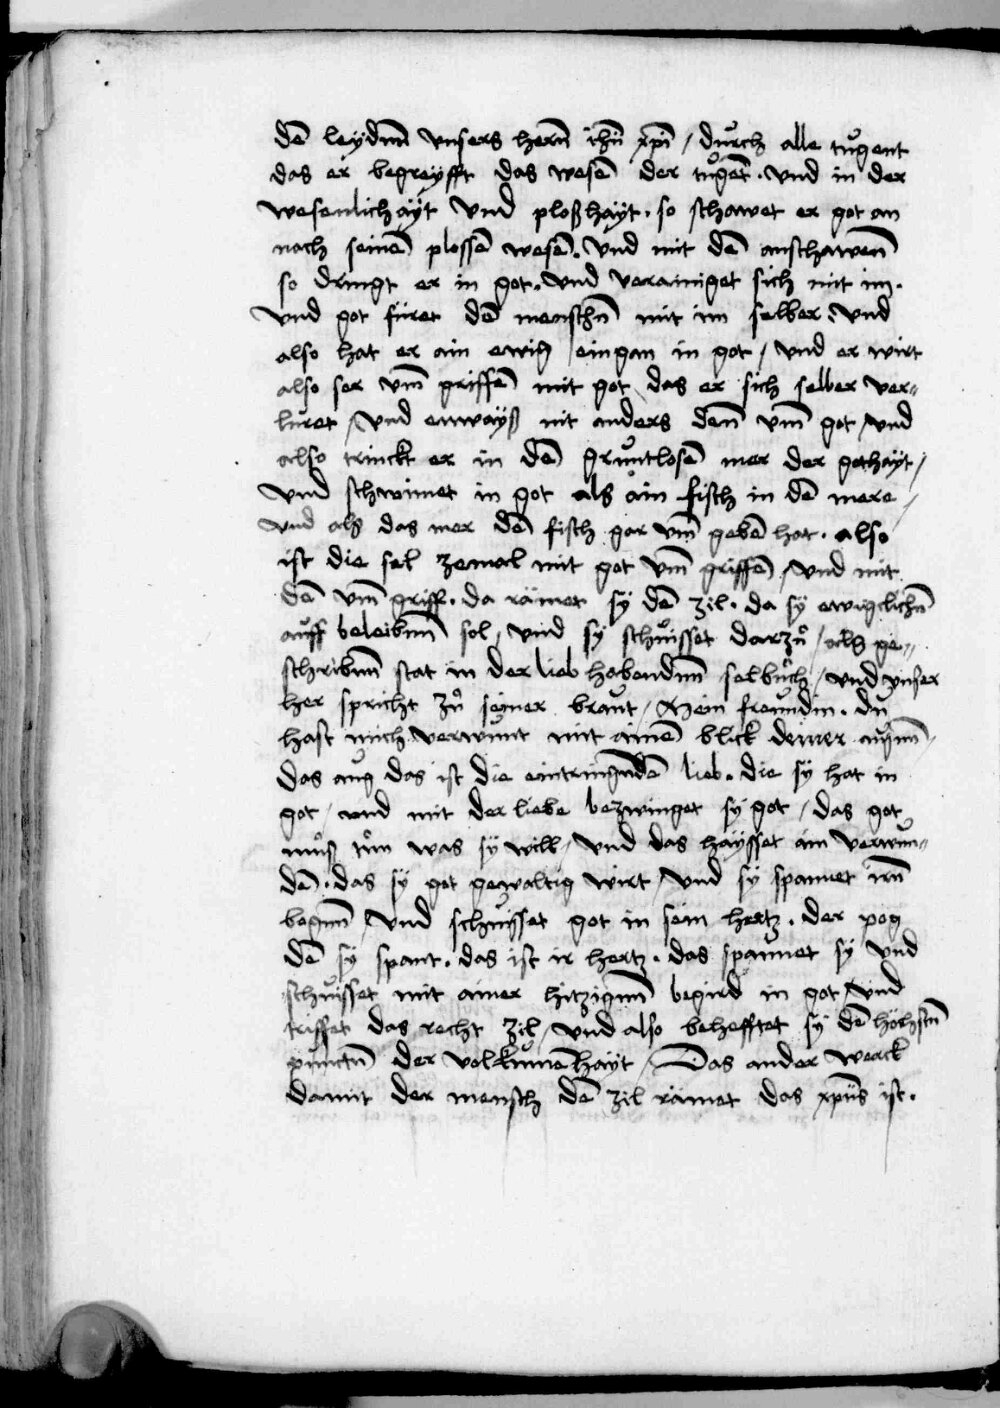 dē leydnn̄ vnsers hern̄ ih̄u xp̄i / durch alle tugent
das er begreyfft das wesē der tugēt . vnd in der
wesenlichäyt vnd ploßhäyt . so schawet er got an
noch seinē plossē wesē . vnd mit dē anschawenn̄
so dringt er in got . vnd verainiget sich mit im .
vnd got füret dē menschn̄ mit im selber . vnd
also hat er ain ewig eingan in got / vnd er wirt
also ser vm̄ griffē mit got das er sich selber ver„
luret / vnd enwayß nit anders den̄ vm̄ got / vnd
also trinckt er in dē gruntlosē mer der gothäyt /
vnd schwimet in got als ain fisch in dē mere /
vnd als das mer dē fisch gar vm̄ gebē hat . also
ist die sel zemol mit got vm̄ griffē / vnd mit
dē vm̄ griff . da rämet sÿ dē zil . da sÿ ewigclichn̄
auff beleibnn̄ sol / vnd sÿ schuisset darzů / als ge„
schribnn̄ stat in der lieb habendnn̄ selbůch / vnd vnser
her spricht zů seiner braut / Mein freundin . du
hast mich verwunt mit ainē blick deiner augnn̄ /
das aug das ist die eintringendē lieb . die sÿ hat in
got / vnd mit der liebe bezwinget sÿ got / das got
můß tůn was sÿ will / vnd das häysset ain verwun„
dē . das sÿ got gewaltig wirt / vnd sÿ spannet irn̄
bognn̄ / vnd schuisset got in sein hertz . der pog
dē sÿ spant . das ist ir hertz . das spannet sÿ vnd
schuisset mit ainer hitzignn̄ begird in got / vnd
triffet das recht zil / vnd also behefftet sÿ dē höchstn̄
punctn̄ der volkumēhäyt / Das ander werck
damit der mensch dē zil rämet das xp̄us ist .